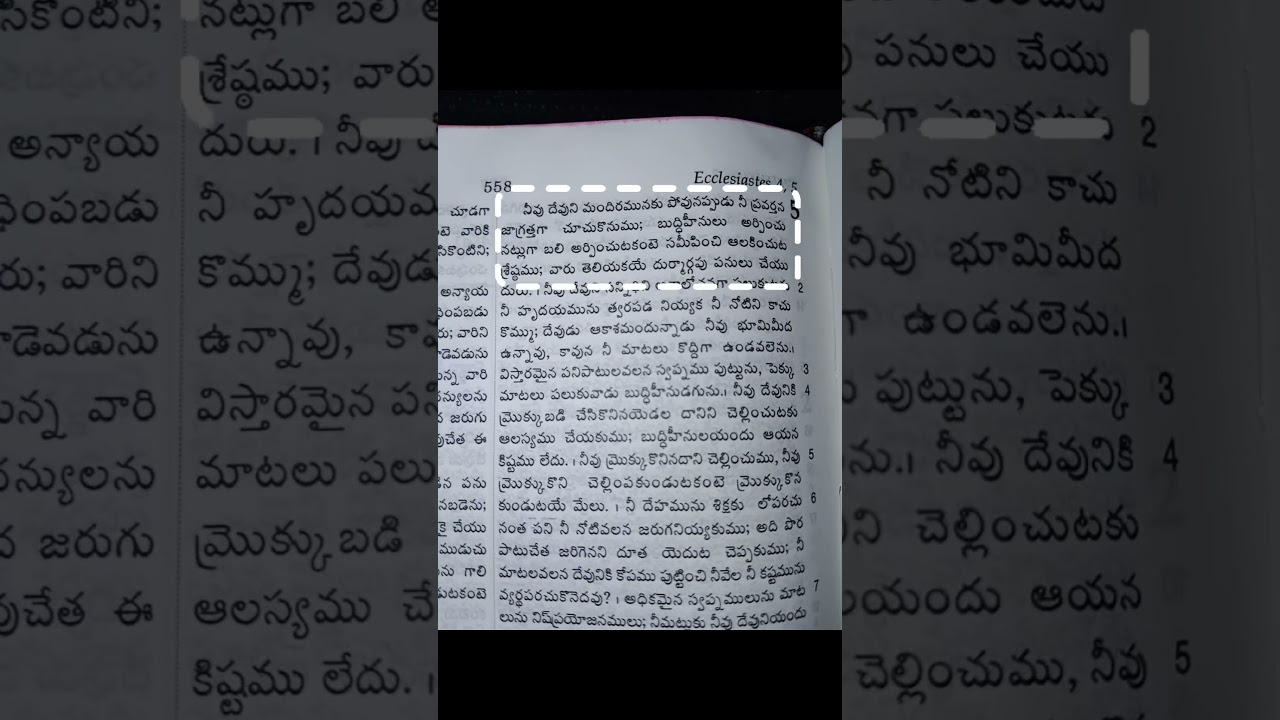 558
Ecclesiastes 4, 5
చూడగా
వారికి
సికొంటిని;
అన్యాయ
ధింపబడు
రు; వారిని
డెవడును
న్న వారి
న్యులను
జరుగు
చేత ఈ
పను
నబడెను;
చేయు
ముడుచు
గాలి
టకంటె
5
నీవు దేవుని మందిరమునకు పోవునప్పుడు నీ ప్రవర్తన
జాగ్రత్తగా చూచుకొనుము; బుద్ధిహీనులు అర్పించు
నట్లుగా బలి అర్పించుటకంటె సమీపించి ఆలకించుట
శ్రేష్ఠము; వారు తెలియకయే దుర్మార్గపు పనులు చేయు
దురు. । నీవు దేవుని సన్నిధిని అనాలోచనగా పలుకుటకు 2
నీ హృదయమును త్వరపడ నియ్యక నీ నోటిని కాచు
కొమ్ము; దేవుడు ఆకాశమందున్నాడు నీవు భూమిమీద
ఉన్నావు, కావున నీ మాటలు కొద్దిగా ఉండవలెను.।
విస్తారమైన పనిపాటులవలన స్వప్నము పుట్టును, పెక్కు 3
మాటలు పలుకువాడు బుద్ధిహీనుడగును.। నీవు దేవునికి 4
మ్రొక్కుబడి చేసికొనినయెడల దానిని చెల్లించుటకు
ఆలస్యము చేయకుము; బుద్ధిహీనులయందు ఆయన
కిష్టము లేదు. । నీవు మ్రొక్కుకొనినదాని చెల్లించుము, నీవు 5
మ్రొక్కుకొని చెల్లింపకుండుటకంటె మ్రొక్కుకొన
కుండుటయే మేలు. । నీ దేహమును శిక్షకు లోపరచు 6
నంత పని నీ నోటివలన జరుగనియ్యకుము; అది పొర
పాటుచేత జరిగెనని దూత యెదుట చెప్పకుము; నీ
మాటలవలన దేవునికి కోపము పుట్టించి నీవేల నీ కష్టమును
వ్యర్థపరచుకొనెదవు? । అధికమైన స్వప్నములును మాట 7
లును నిష్‌ప్రయోజనములు; నీమట్టుకు నీవు దేవునియందు